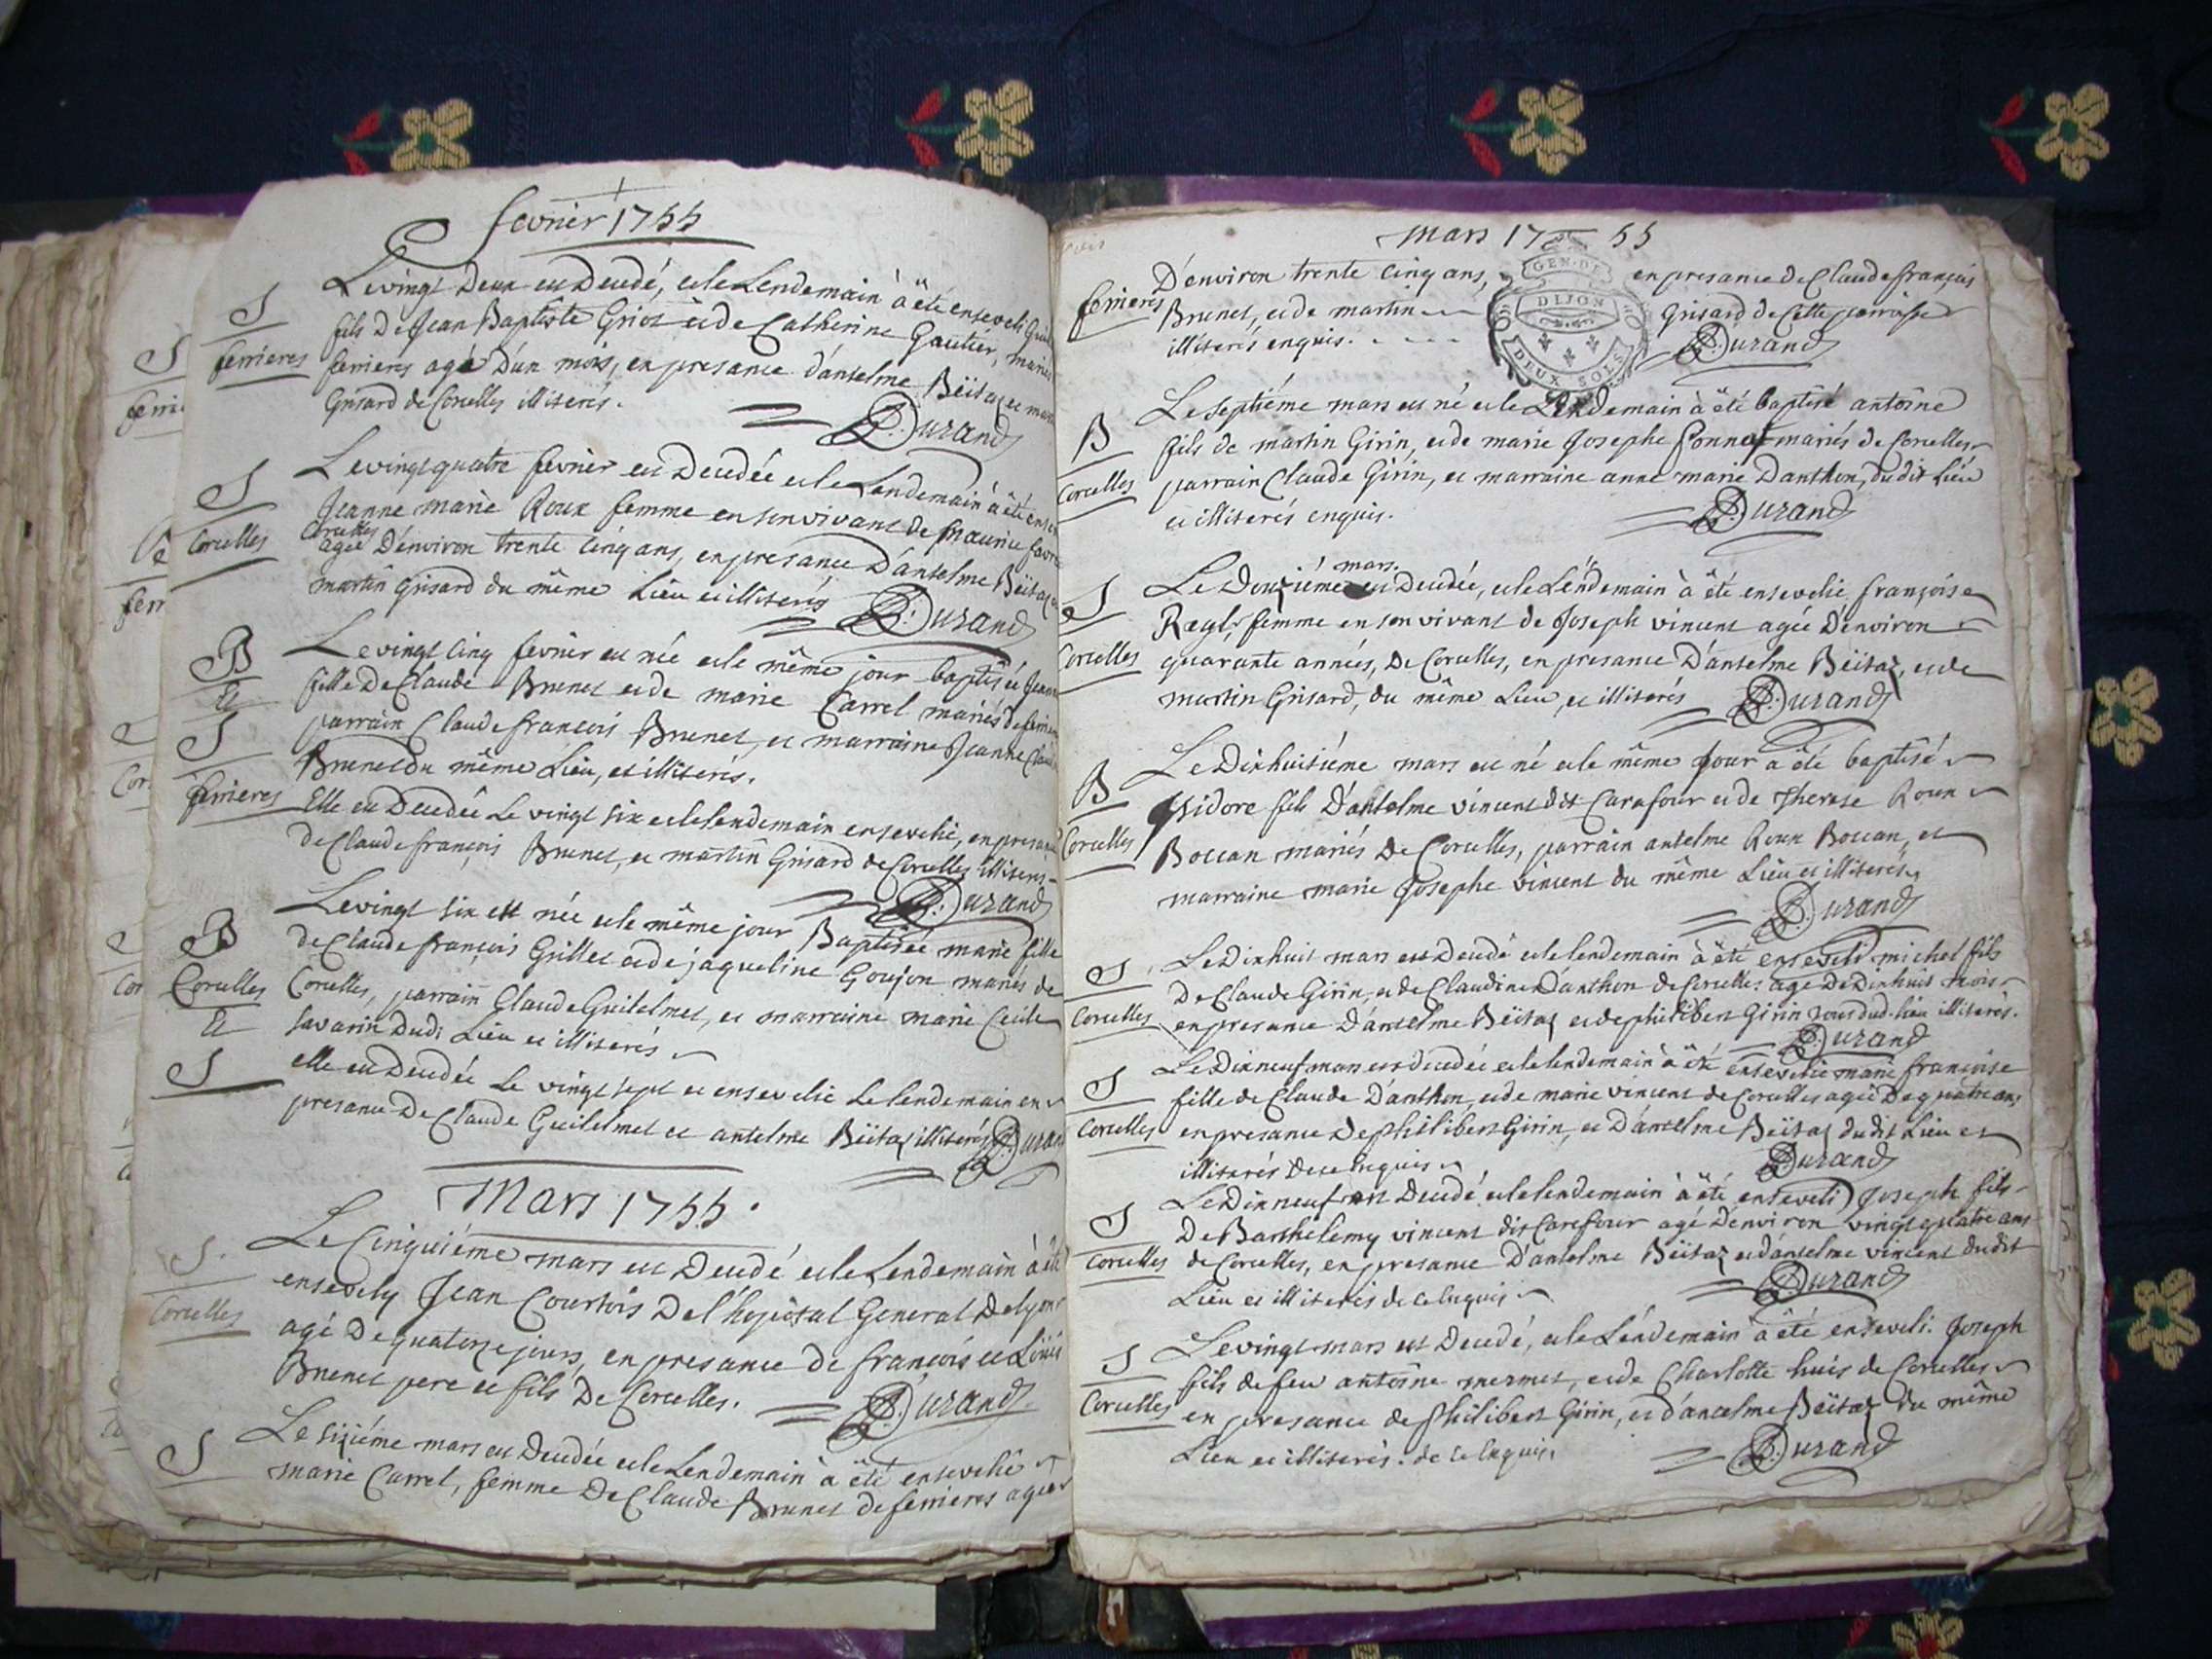 fevrier 1755
S
ferrieres
Le vingt Deux est Decedé, et le Lendemain à été enseveli
fils De Jean Baptiste Griot et de Catherine Gautier, mariés
ferrieres agé D'un mois, en presance d'antelme Béitaz et
Grisard de Corcelles illiterés.
B: Durand
S
Corcelles
Le vingt quatre fevrier est Decedée et le Lendemain à été
Jeanne marie Roux femme en son vivant de Maurice
Corcelles
agée D'environ trente cinq ans, en presance D'antelme Béitaz
martin Grisard du même Lieu et illiterés
B: Durand
B
Et
S
ferrieres
Le vingt cinq fevrier est née et le même jour baptisée
fille De Claude Brunet et de marie Carrel mariés de
parrain Claude françois Brunet, et marraine Jeanne
Brunet du même Lieu, et illiterés.
Elle est Decedée Le vingt six et le lendemain ensevelie, en presance
de Claude françois Brunet, et martin Grisard de Corcelles illiterés
B: Durand
B
Corcelles
Et
S
Le vingt six est née et le même jour Baptisée marie fille
de Claude françois Grillet et de jaqueline Goujon mariés de
Corcelles, parrain Claude Guilelmet, et marraine marie Cecile
Savarin Dudt Lieu et illiterés
elle est Decedée Le vingt sept et ensevelie Le lendemain en
presance De Claude Guilelmet et antelme Béitaz illiterés B: Durand
Mars 1755.
S.
Corcelles
Le Cinquiéme mars est Decedé et le Lendemain à été
ensevely Jean Courtois De l'hopital General De Lyon
agé De quatorze jours, en presance de françois et Loüis
Brunet pere et fils De Corcelles.
B: Durand
S
Le sixiéme mars est Decedée et le Lendemain à été ensevelie
marie Carrel, femme De Claude Brunet de ferrieres agée
Mars 17 55
GEN. DE
DIJON
DEUX SOLS
ferrieres
D'environ trente cinq ans, en presance de Claude françois
Brunet, et de martin Grisard de Cette parroisse
illiterés enquis.
B: Durand
B
Corcelles
Le septiéme mars est né et le Lendemain à été baptisé antoine
fils de martin Girin, et de marie Josephe mariés de Corcelles,
parrain Claude Girin, et marraine anne marie Danthon, du dit Lieu
et illiterés enquis.
B: Durand
S
Corcelles
mars.
Le Douziéme est Decedée, et le Lendemain à été ensevelie françoise
femme en son vivant de Joseph vincent agée D'environ
quarante années, De Corcelles, en presance D'antelme Béitaz, et de
martin Grisard, du même Lieu, et illiterés B: Durand
B
Corcelles
Le Dixhuitiéme mars est né et le même jour a été baptisé
Isidore fils D'antelme vincent dit Carafour et de Therese Roux
Boccan mariés De Corcelles, parrain antelme Roux Boccan, et
marraine marie Josephe vincent du même Lieu et illiterés
B: Durand
S
Corcelles
Le Dixhuit mars est Decedé et le lendemain à été enseveli michel fils
De Claude Girin, et de Claudine D'anthon de Corcelles agé De Dixhuit mois
en presance D'antelme Béitaz et de philibert Girin tous dud. lieu illiterés.
B: Durand
S
Corcelles
Le Dixneuf mars est decedée et le lendemain à été ensevelie marie françoise
fille de Claude D'anthon, et de marie vincent de Corcelles agée De quatre ans
en presance De philibert Girin, et D'antelme Béitaz du dit Lieu et
illiterés de ce enquis
B: Durand
S
Corcelles
Le Dixneuf est Decedé et le lendemain à été enseveli Joseph fils
De Barthelemy vincent dit Carefour agé D'environ vingt quatre ans
de Corcelles, en presance D'antelme Béitaz et d'antelme vincent du dit
Lieu et illiterés de ce enquis
B: Durand
S
Corcelles
Le vingt mars est Decedé, et le Léndemain à été enseveli. Joseph
fils de feu antoine mermet, et de Charlotte huis de Corcelles
en presance de philibert Girin, et d'antelme Béitaz du même
Lieu et illiterés. de ce enquis.
B: Durand